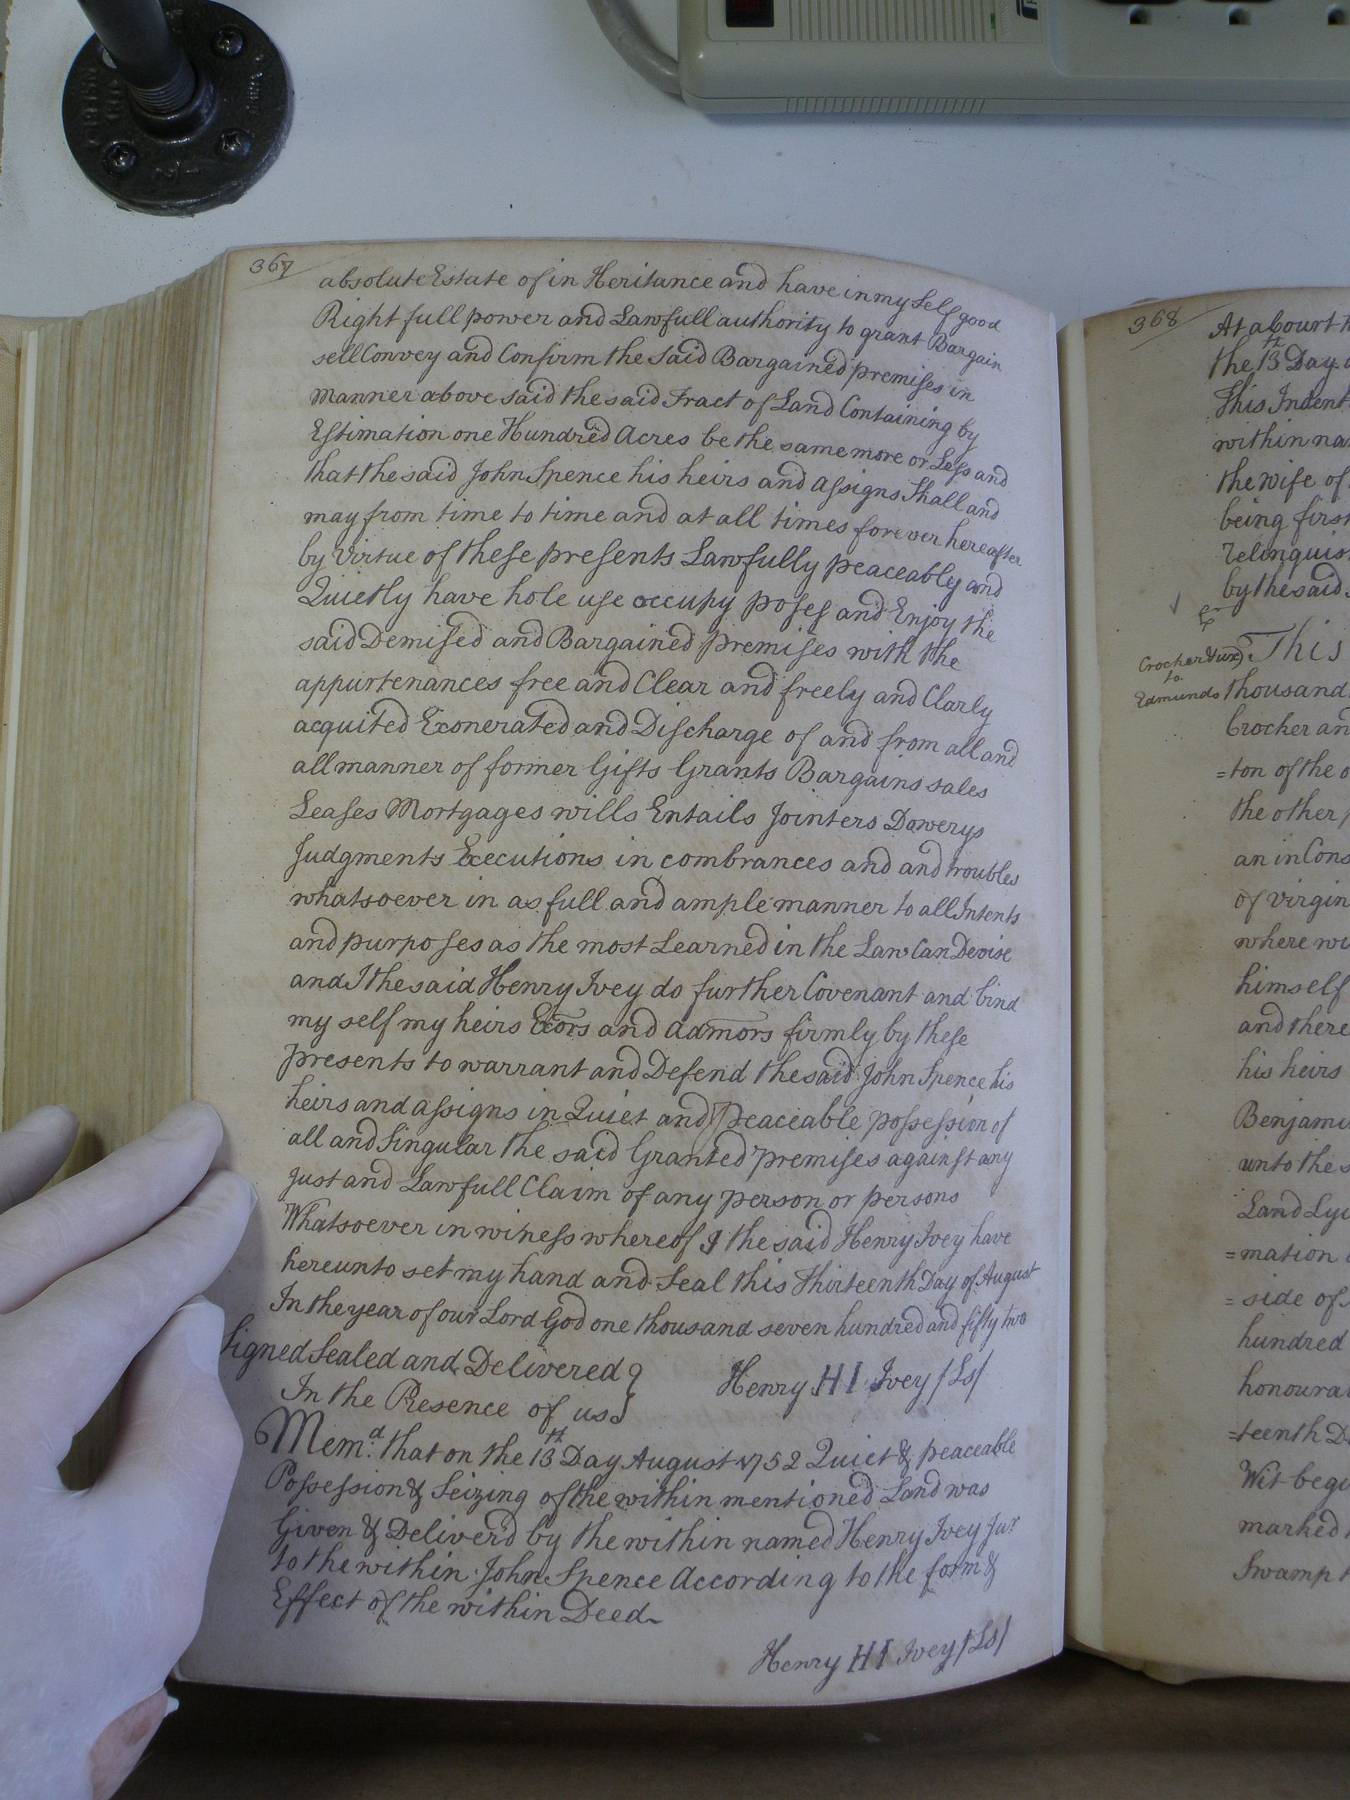 367
absolute Estate of in Heritance and have in my Self good
Right full power and Lawfull authority to grant Bargain
sell Convey and Confirm the Said Bargained premises in
manner above said the said Tract of Land Containing by
Estimation one Hundred Acres be the same more or Less and
that the said John Spence his heirs and assigns Shall and
may from time to time and at all times forever hereafter
by virtue of these presents Lawfully peaceably and
Quietly have hole use occupy poses and Enjoy the
said Demised and Bargained premises with the
appurtenances free and Clear and freely and Clarly
acquited Exonerated and Discharge of and from all and
all manner of former Gifts Grants Bargains sales
Leases Mortgages wills Entails Jointers Dowerys
Judgments Executions in combrances and and troubles
whatsoever in as full and ample manner to all Intents
and purposes as the most Learned in the Law Can Devise
and I the said Henry Ivey do further Covenant and bind
my self my heirs Exors and admors firmly by these
presents to warrant and Defend the said John Spence his
heirs and assigns in Quiet and peaceable possession of
all and Singular the said Granted premises against any
just and Lawfull Claim of any person or persons
Whatsoever in witness whereof I the said Henry Ivey have
hereunto set my hand and Seal this Thirteenth Day of August
In the year of our Lord God one thousand seven hundred and fifty two
Signed Sealed and Delivered }
In the Presence of us }
Henry HI Ivey /Ls/
Mem.d that on the 13th Day August 1752 Quiet & peaceable
Possession & Seizing of the within mentioned Land was
Given & Deliver'd by the within named Henry Ivey Junr
to the within John Spence According to the form &
Effect of the within Deed
Henry HI Ivey /Ls/
368
At a Court
the 13th Day
This Indent
within na
the wife of
being first
relinquis
by the said
Crocker & ux
to
Edmunds
This
thousand
Crocker an
=ton of the
the other
an in Cons
of virgin
where
himself
and there
his heirs
Benjami
unto the
Land Lyi
=mation
=side of
hundred
honoura
=teenth D
Wit begi
marked
Swamp